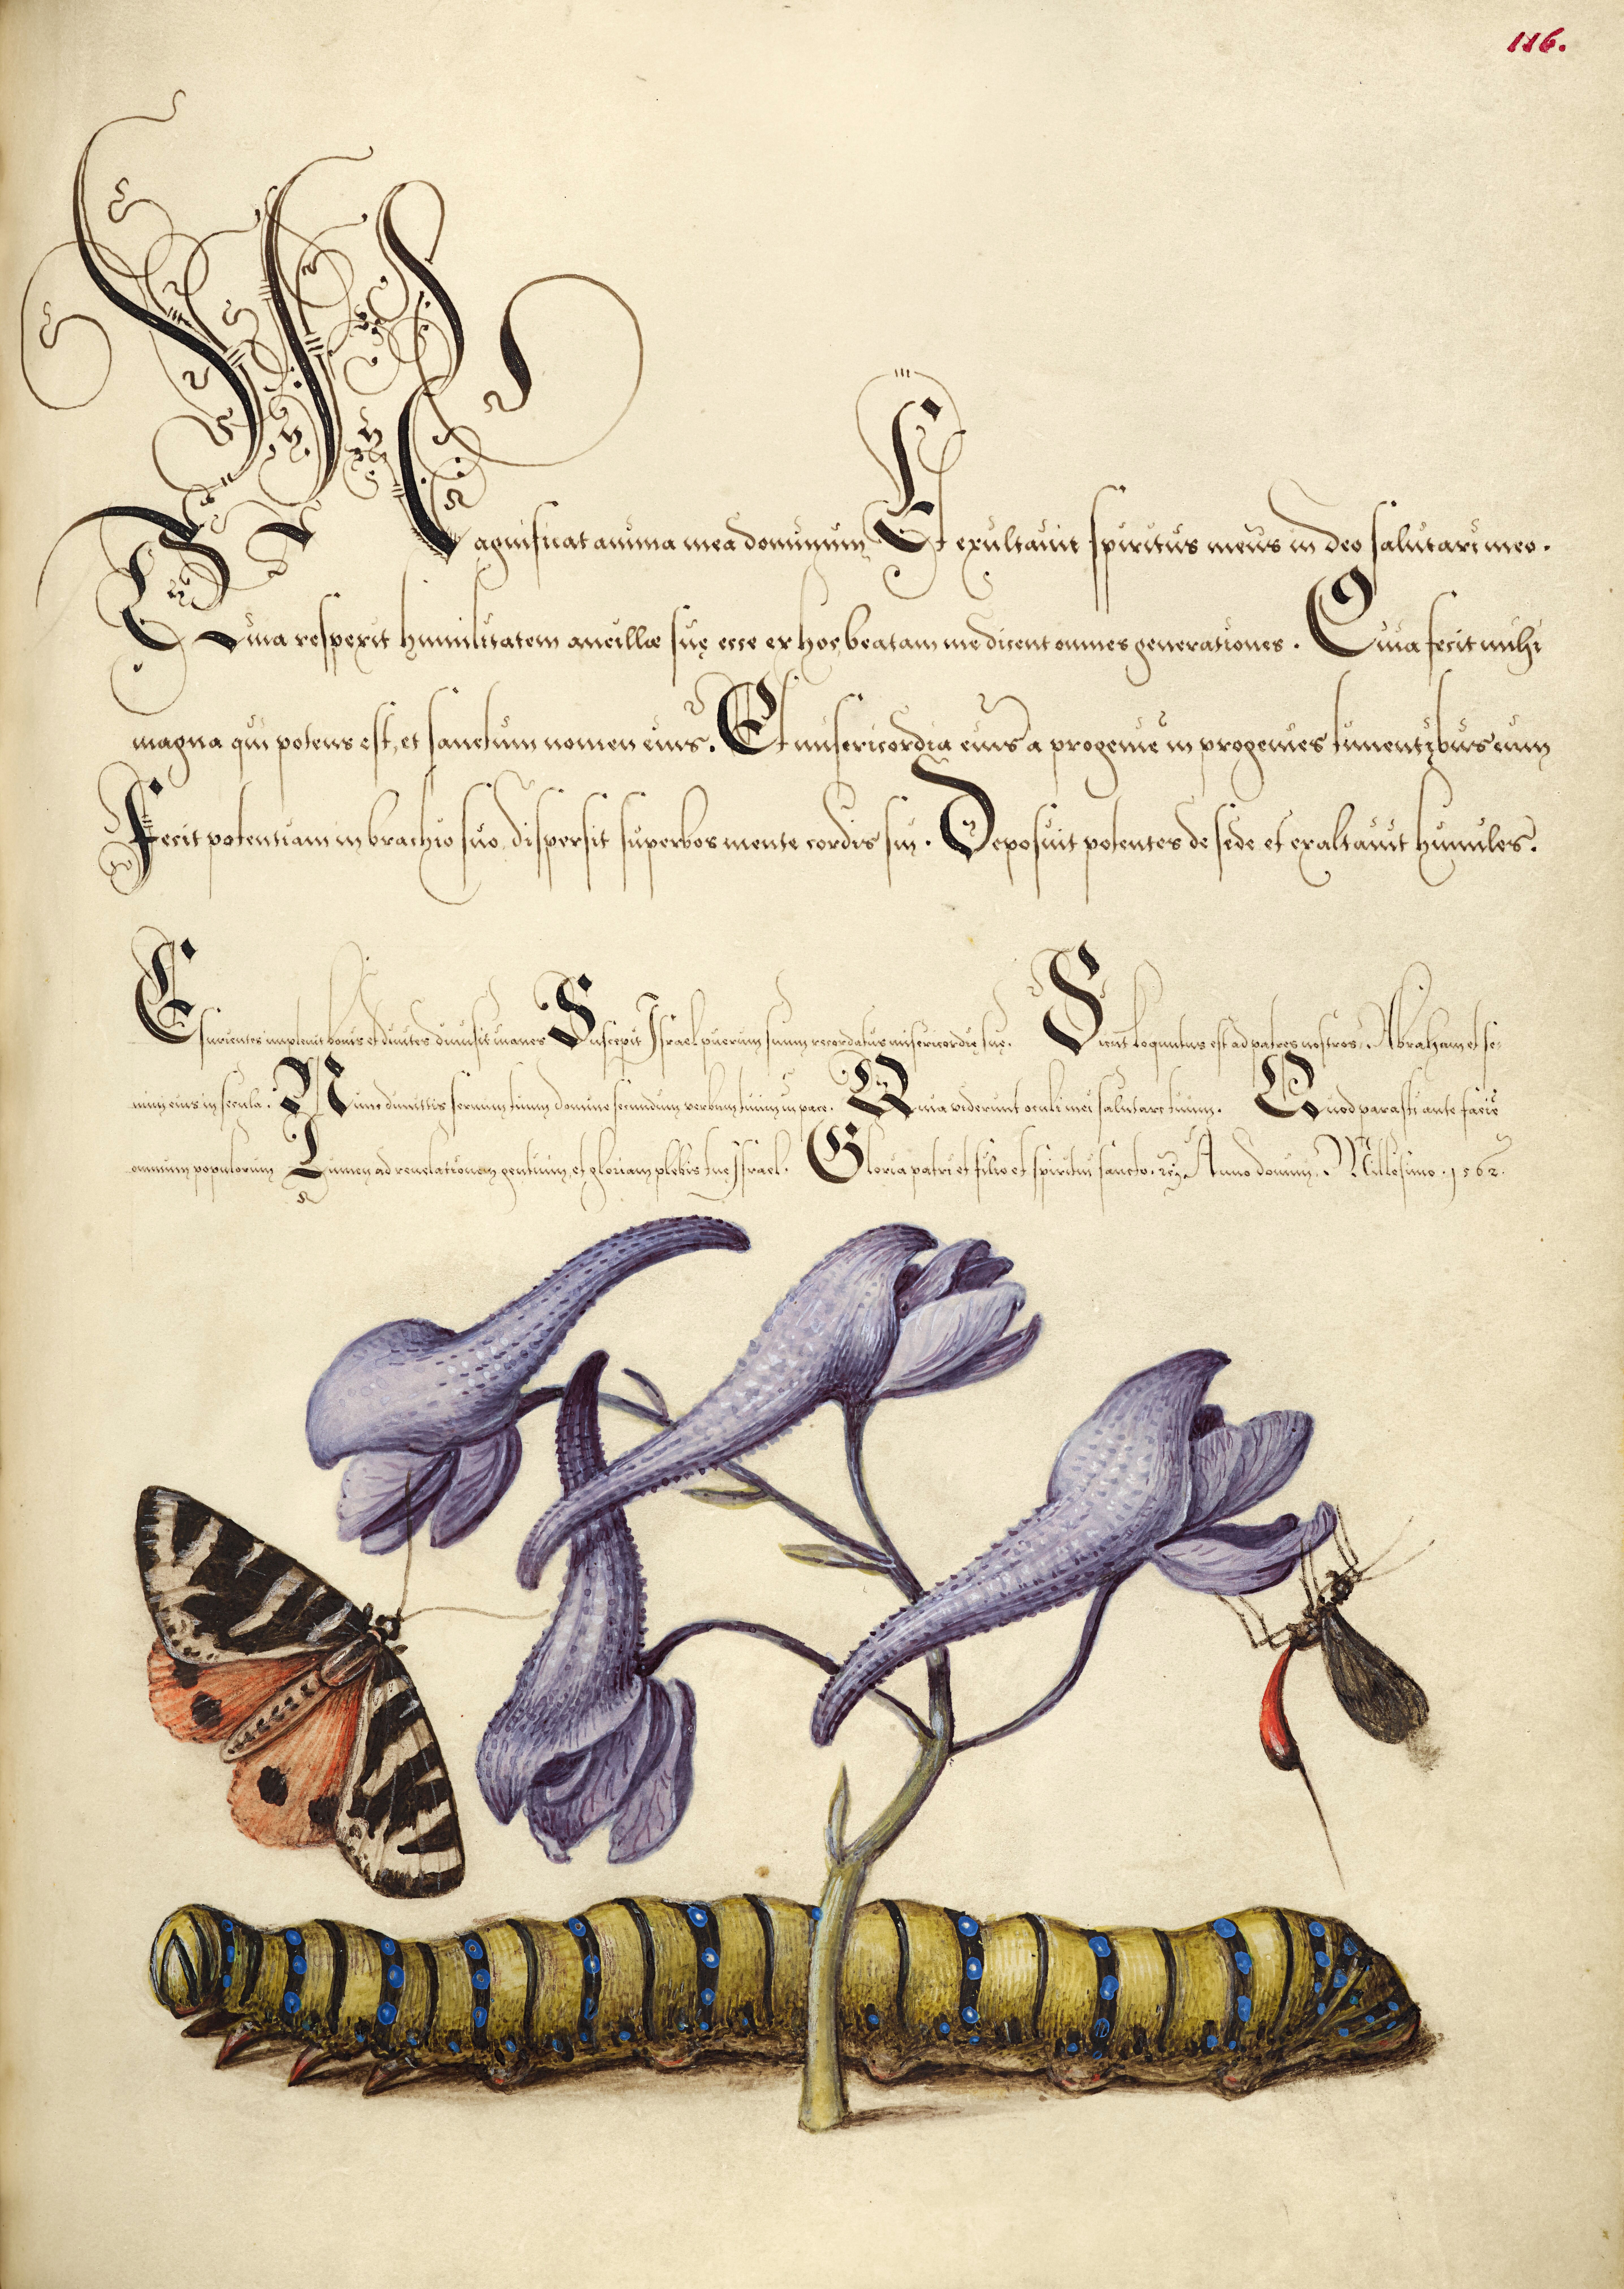 116.
Magnificat anima mea dominum Et exultavit spiritus meus in deo salutari meo.
Quia respexit humilitatem ancillæ suę ecce ex hoc beatam me dicent omnes generationes. Quia fecit mihi
magna qui potens est, et sanctum nomen eius. Et misericordia eius a progenie in progenies timentibus eum
Fecit potentiam in brachio suo, dispersit superbos mente cordis sui. Deposuit potentes de sede et exaltavit humiles.
Esurientes implevit bonis et divites dimisit inanes Suscepit Israel puerum suum recordatus misericordię suę. Sicut loquutus est ad patres nostros, Abraham et se-
mini eius in secula. Nunc dimittis servum tuum domine secundum verbum tuum in pace. Quia viderunt oculi mei salutare tuum. Quod parasti ante faciē
omnium populorum Lumen ad revelationem gentium, et gloriam plebis tuę Israel. Gloria patri et filio et spiritui sancto. Anno domini. Millesimo. 1562.